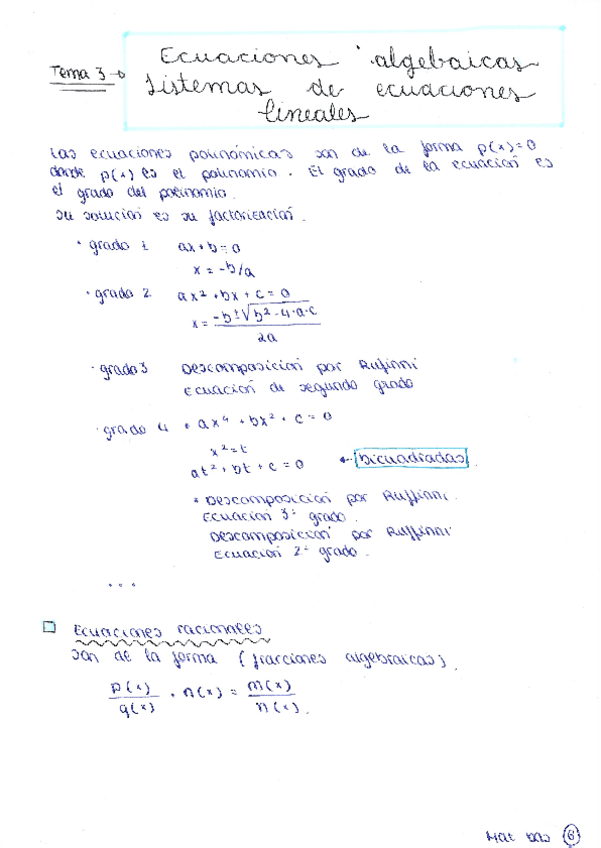 Tema 3 → Ecuaciones algebaicas
Sistemas de ecuaciones
lineales
Las ecuaciones polinómicas son de la forma p(x)=0
donde p(x) es el polinomio. El grado de la ecuación es
el grado del polinomio.
Su solución es su factorización.
· grado 1 ax+b=0
x = -b/a
· grado 2 ax² + bx + c = 0
x = (-b ± √(b² - 4·a·c)) / 2a
· grado 3 Descomposición por Ruffinni
Ecuación de segundo grado
· grado 4 * ax⁴ + bx² + c = 0
x² = t
at² + bt + c = 0 ← bicuadradas
* Descomposición por Ruffinni.
Ecuación 3º grado.
Descomposición por Ruffinni
Ecuación 2º grado.
...
□ Ecuaciones racionales
son de la forma (fracciones algebraicas).
p(x)/q(x) · n(x) = m(x)/n(x).
Mat Bas 6